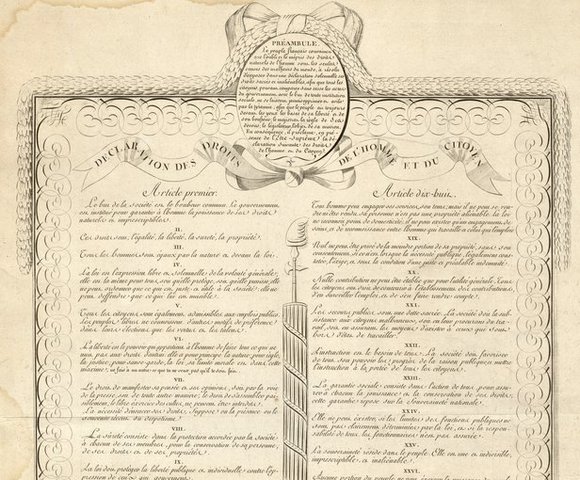 PRÉAMBULE.
Le peuple français convaincu
que l'oubli et le mépris des droits
naturels de l'homme sont les seules
causes des malheurs du monde, a résolu
d'exposer dans une déclaration solennelle ces
droits sacrés et inaliénables, afin que tous les
citoyens pouvant comparer sans cesse les actes
du gouvernement avec le but de toute institution
sociale ne se laissent jamais opprimer et avilir
par la tyrannie; afin que le peuple ait toujours
devant les yeux les bases de sa liberté et de
son bonheur, le magistrat la règle de ses
devoirs, le législateur l'objet de sa mission.
En conséquence, il proclame, en pré-
sence de l'Etre-Suprême, la dé-
claration suivante des droits
de l'homme et du Citoyen.
DECLARATION DES DROITS DE L'HOMME ET DU CITOYEN
Article premier.
Le but de la Société est le bonheur commun. Le gouvernement
est institué pour garantir à l'homme la jouissance de ses droits
naturels et imprescriptibles.
II.
Ces droits sont, l'égalité, la liberté, la sureté, la propriété.
III.
Tous les hommes sont égaux par la nature et devant la loi.
IV.
La loi est l'expression libre et solemnelle de la volonté générale;
elle est la même pour tous, soit qu'elle protège, soit qu'elle punisse; elle
ne peut ordonner que ce qui est juste et utile à la société; elle ne
peut défendre que ce qui lui est nuisible.
V.
Tous les citoyens sont également admissibles aux emplois publics
les peuples libres ne connoissent d'autres motifs de préférence
dans leurs élections que les vertus et les talens.
VI.
La liberté est le pouvoir qui appartient à l'homme de faire tout ce qui ne
nuit pas aux droits d'autrui: elle a pour principe la nature, pour règle,
la justice, pour sauve-garde, la loi, sa limite morale est dans cette
maxime: ne fais à un autre ce que tu ne veux pas qu'il te soit fait.
VII.
Le droit de manifester sa pensée et ses opinions, soit par la voie
de la presse, soit de toute autre manière, le droit de s'assembler pai-
siblement, le libre exercice des cultes, ne peuvent être interdits.
La nécessité d'énoncer ces droits, suppose ou la présence ou le
souvenir récent du despotisme.
VIII.
La sûreté consiste dans la protection accordée par la Société
à chacun de ses membres, pour la conservation de sa personne,
de ses droits et de ses propriétés.
IX.
La loi doit protéger la liberté publique et individuelle contre l'op-
pression de ceux qui gouvernent.
Article dix-huit.
Tout homme peut engager ses services, son tems; mais il ne peut se ven-
dre ni être vendu, sa personne n'est pas une propriété aliénable. la loi
ne reconnoit point de domesticité, il ne peut exister qu'un engagement de
soins et de reconnoissance entre l'homme qui travaille et celui qui l'emploie
XIX.
Nul ne peut être privé de la moindre portion de sa propriété, sans son
consentement, si ce n'est lorsque la nécessité publique, légalement consta-
tée, l'exige, et sous la condition d'une juste et préalable indemnité.
XX.
Nulle contribution ne peut être établie que pour l'utilité générale. Tous
les citoyens ont droit de concourir à l'établissement des contributions,
d'en surveiller l'emploi, et de s'en faire rendre compte.
XXI.
Les secours publics sont une dette sacrée. La Société doit la sub-
sistance aux citoyens malheureux, soit en leur procurant du tra-
vail, soit en assurant les moyens d'exister à ceux qui sont
hors d'état de travailler.
XXII.
L'instruction est le besoin de tous. La Société doit favoriser
de tout son pouvoir les progrès de la raison publique, et mettre
l'instruction à la portée de tous les citoyens.
XXIII.
La garantie sociale consiste dans l'action de tous, pour assu-
rer à chacun la jouissance et la conservation de ses droits;
cette garantie repose sur la souveraineté nationale.
XXIV.
Elle ne peut exister, si les limites des fonctions publiques ne
sont pas clairement déterminées par la loi, et si la respon-
sabilité de tous les fonctionnaires n'est pas assurée.
XXV.
La souveraineté réside dans le peuple. Elle est une et indivisible,
imprescriptible et inaliénable.
XXVI.
Aucune portion du peuple ne peut exercer la puissance du